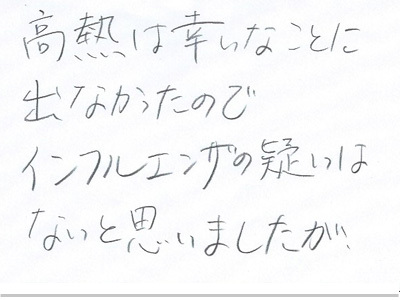 高熱は幸いなことに
出なかったので
インフルエンザの疑いは
ないと思いましたが、